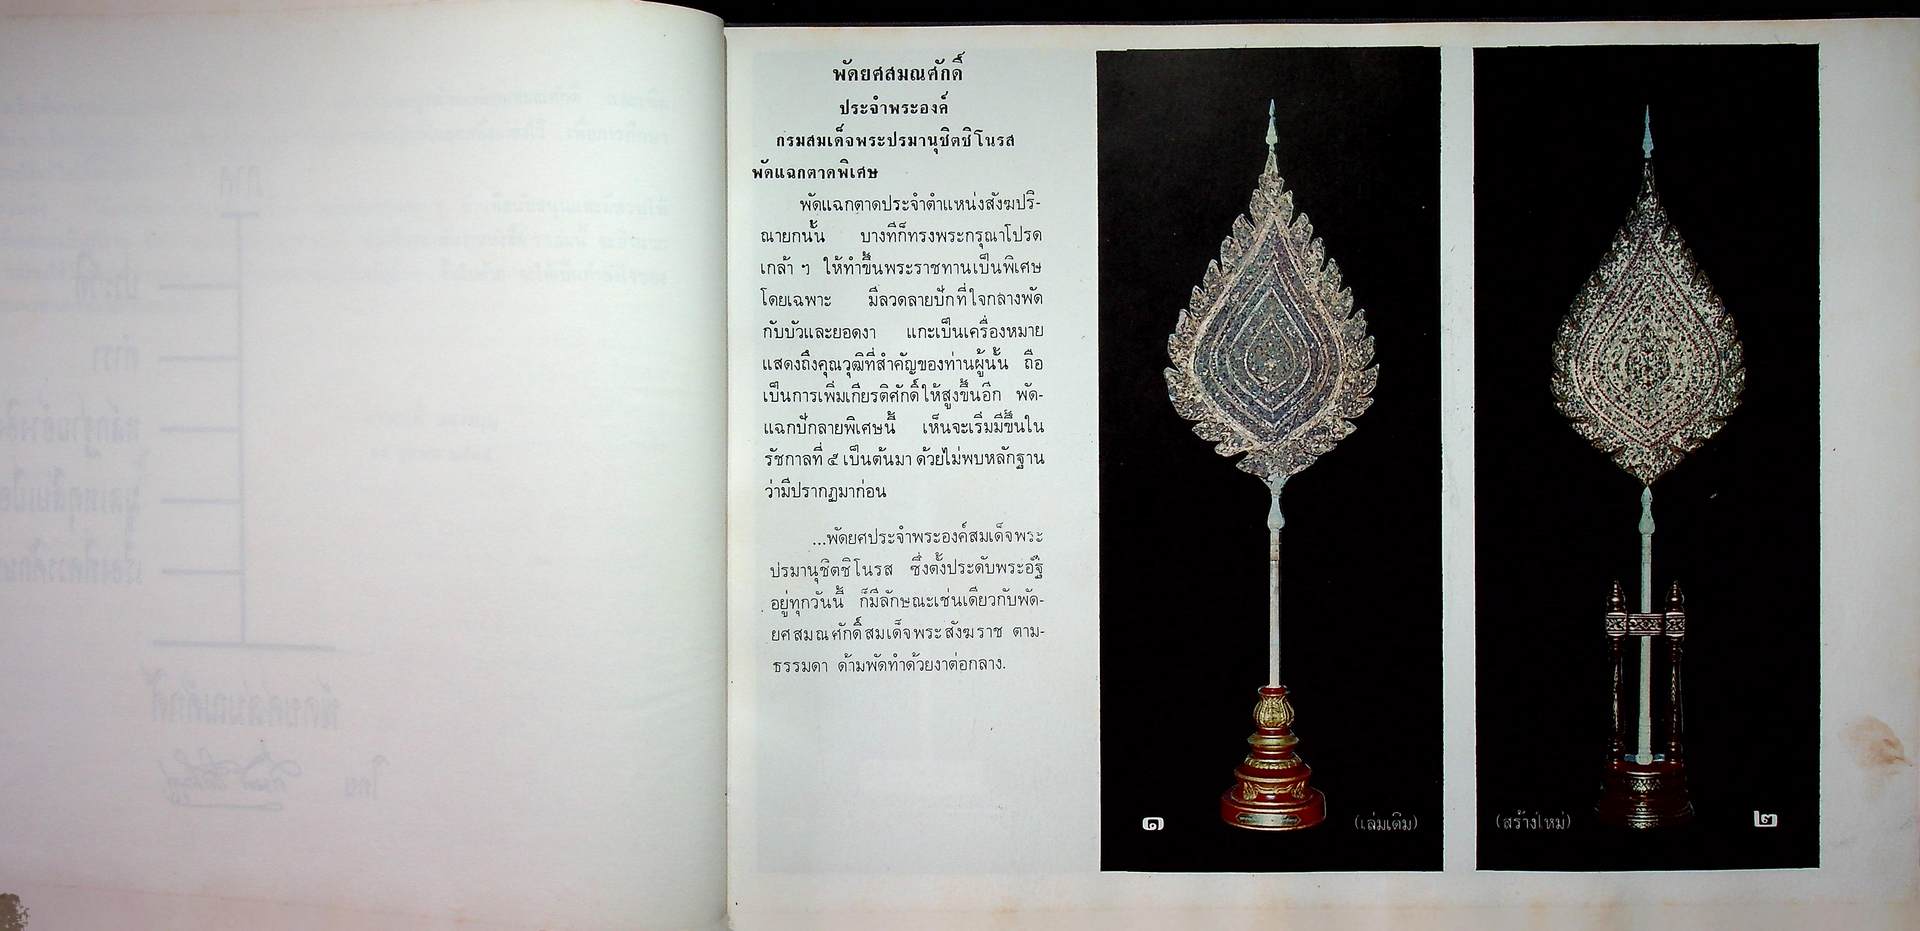 พัดยศสมณศักดิ์
ประจำพระองค์
กรมสมเด็จพระปรมานุชิตชิโนรส
พัดแฉกตาดพิเศษ
พัดแฉกตาดประจำตำแหน่งสังฆปริ-
ณายกนั้น บางทีก็ทรงพระกรุณาโปรด
เกล้า ๆ ให้ทำขึ้นพระราชทานเป็นพิเศษ
โดยเฉพาะ มีลวดลายปักที่ใจกลางพัด
กับบัวและยอดงา แกะเป็นเครื่องหมาย
แสดงถึงคุณวุฒิที่สำคัญของท่านผู้นั้น ถือ
เป็นการเพิ่มเกียรติศักดิ์ให้สูงขึ้นอีก พัด-
แฉกปักลายพิเศษนี้ เห็นจะเริ่มมีขึ้นใน
รัชกาลที่ ๕ เป็นต้นมา ด้วยไม่พบหลักฐาน
ว่ามีปรากฏมาก่อน
...พัดยศประจำพระองค์สมเด็จพระ
ปรมานุชิตชิโนรส ซึ่งตั้งประดับพระอัฐิ
อยู่ทุกวันนี้ ก็มีลักษณะเช่นเดียวกับพัด-
ยศสมณศักดิ์สมเด็จพระสังฆราช ตาม-
ธรรมดา ด้ามพัดทำด้วยงาต่อกลาง.
๑ (เล่มเดิม)
(สร้างใหม่) ๒